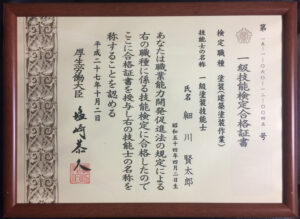 一級技能検定合格証書
検定職種 塗装(建築塗装作業)
技能士の名称 一級塗装技能士
氏名 細川 賢太郎
昭和五十四年四月二日生
あなたは職業能力開発促進法の規定による
右の職種に係る技能検定に合格したので
ここに合格証書を授与し右の技能士の名称を
称することを認める
平成二十七年十月二日
厚生労働大臣 塩崎恭久